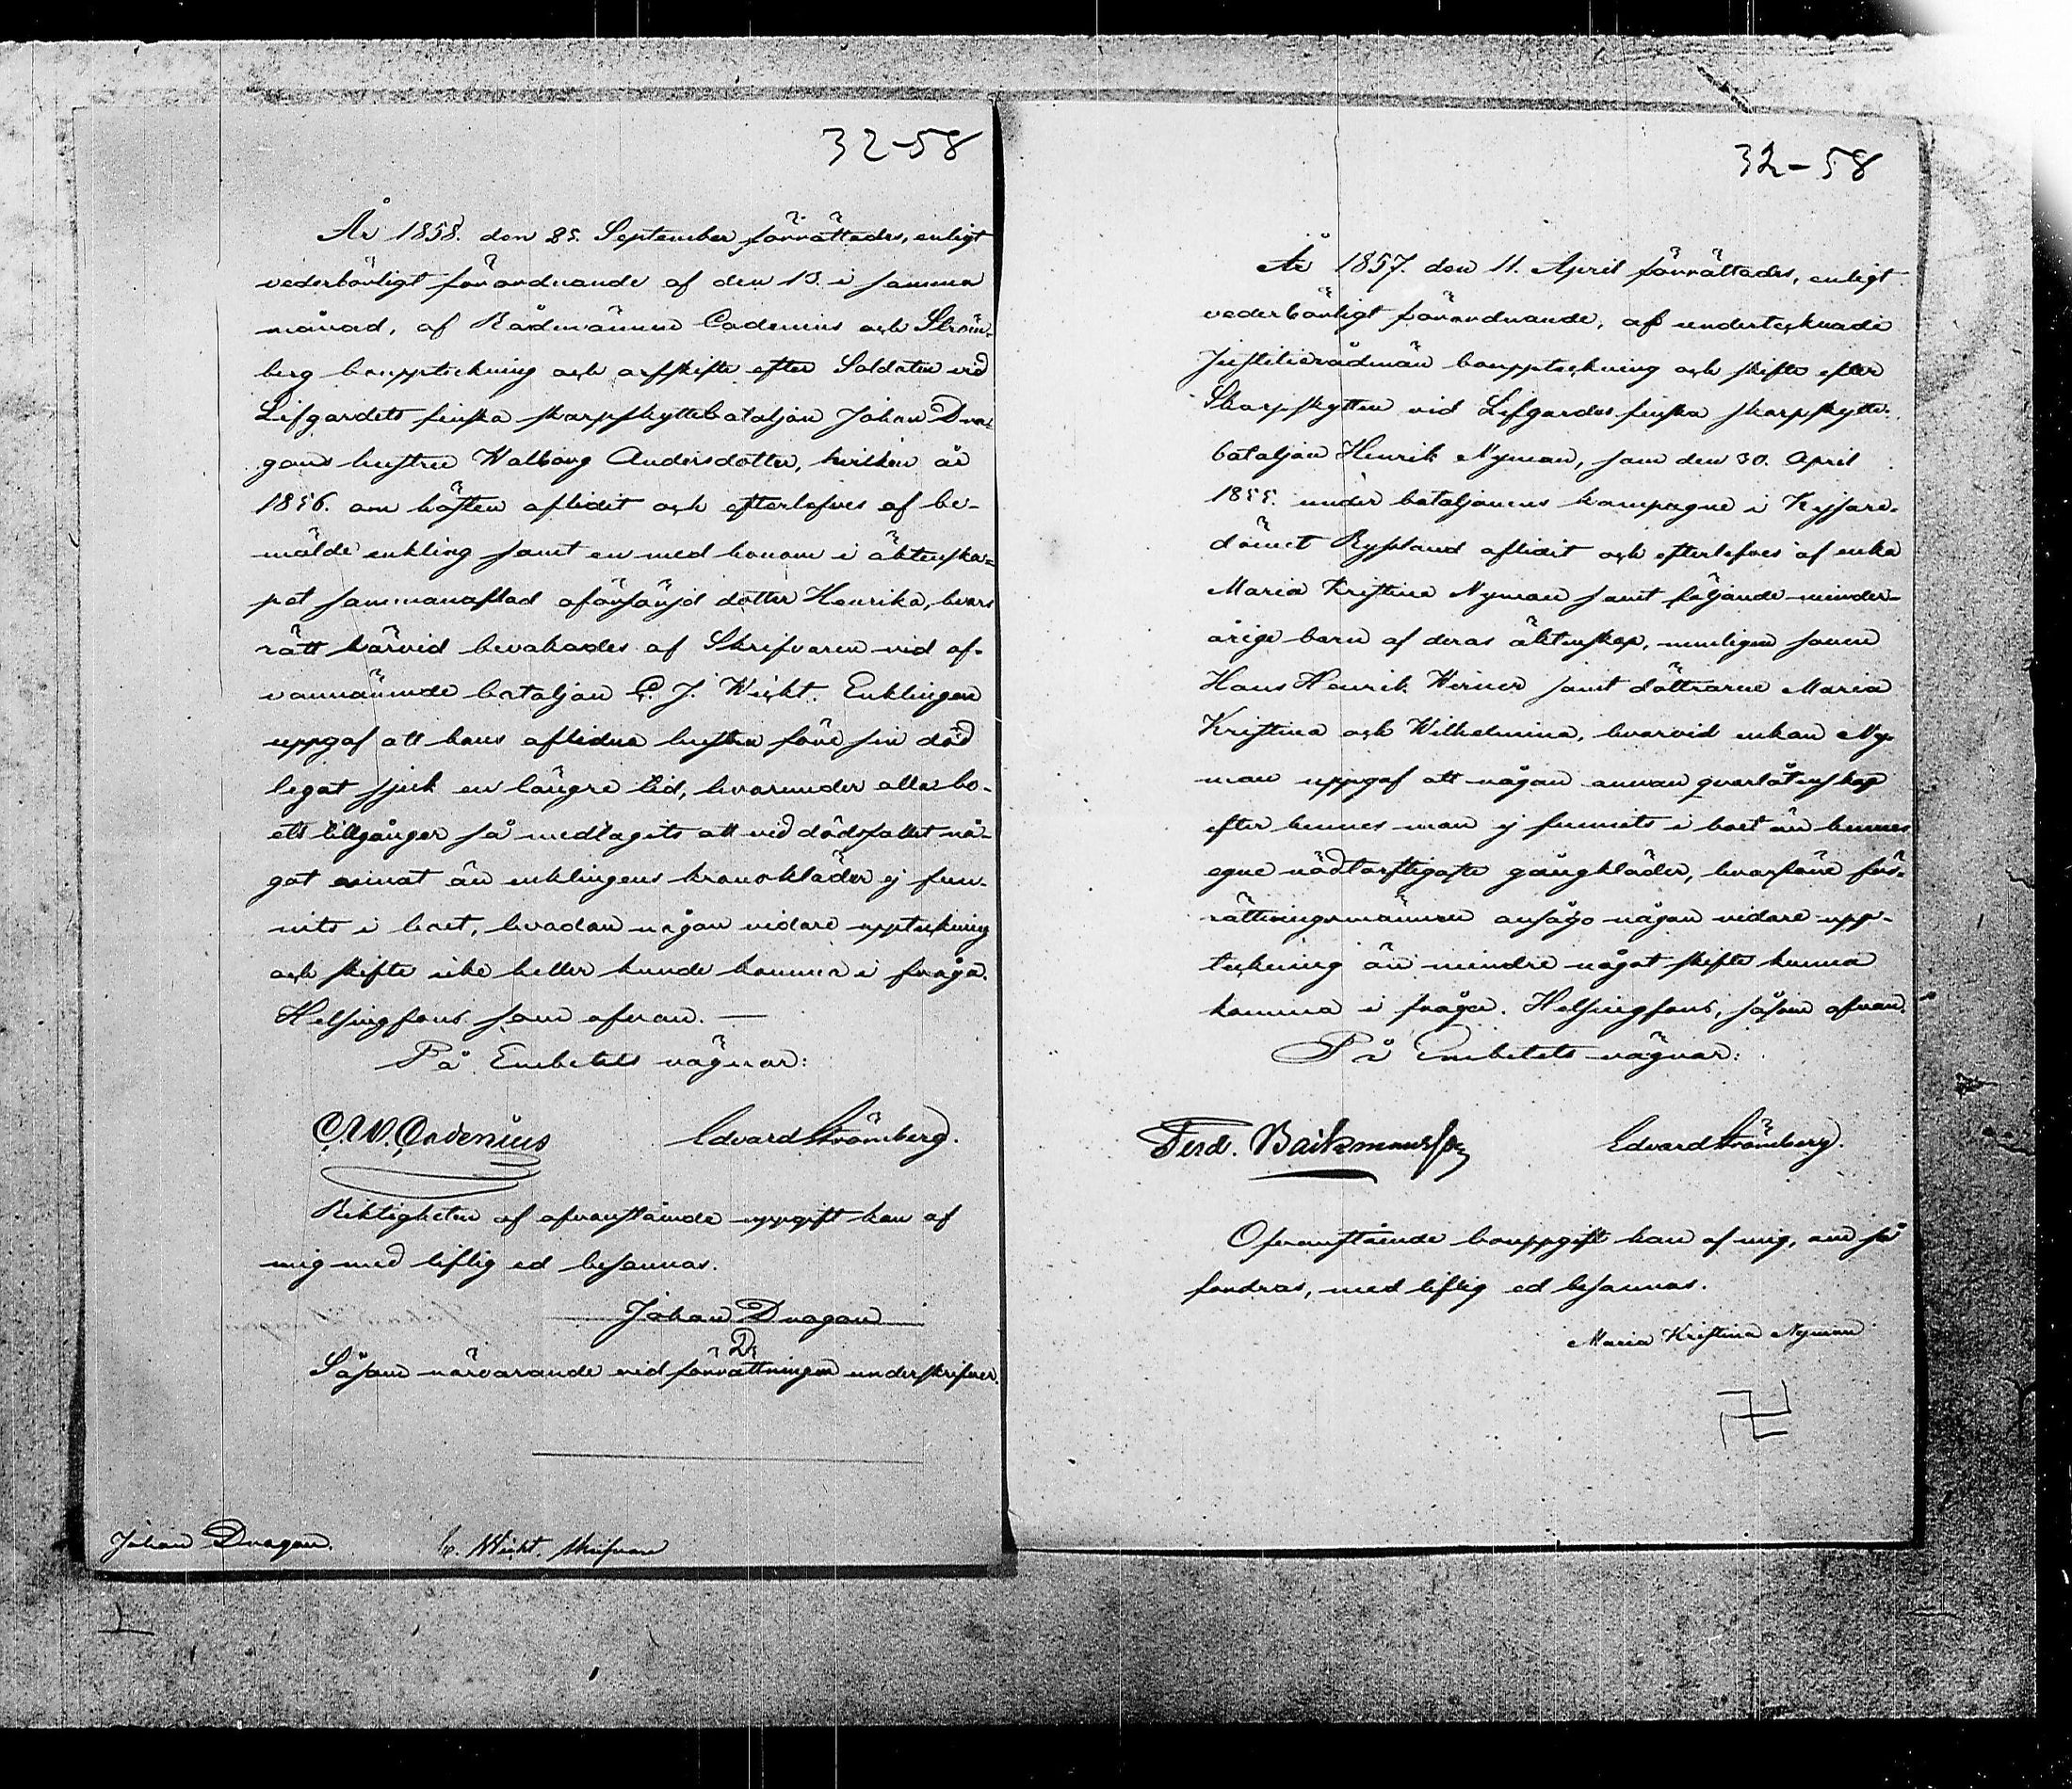 32-58
År 1858. den 25. September förrättades, enligt
vederbörligt förordnande af den 13. i samma
månad, af Rådmännen Cadenius och Ström-
berg bouppteckning och arfskifte efter Soldaten vid
Lifgardets finska skarpskyttebataljon Johan Dra-
gons hustru Walborg Andersdotter, hvilken år
1856. om hösten aflidit och efterlefves af be-
mälde enkling samt en med honom i äktenska-
pet sammanaflad oförsörjd dotter Henrika, hvars
rätt härvid bevakades af Skrifvaren vid of-
vannämnde bataljon C. J. Wickt. Enklingen
uppgaf att hans aflidna hustru före sin död
legat sjuk en längre tid, hvarunder alla bo-
ets tillgångar så medtagits att vid dödsfallet nå-
got annat än enklingens kronokläder ej fun-
nits i boet, hvadan någon vidare uppteckning
och skifte icke heller kunde komma i fråga.
Helsingfors som ofvan. —
På Embetets vägnar:
C. W. Cadenius Edvard Strömberg.
Riktigheten af ofvanstående uppgift kan af
mig med liflig ed besannas.
Johan Dragon
Såsom närvarande vid förrättningen underskrifver.
Johan Dragon. C. Wickt. skrifvare
32-58
År 1857. den 11. April förrättades, enligt
vederbörligt förordnande, af undertecknade
Justitierådmän bouppteckning och skifte efter
Skarpskytten vid Lifgardes finska skarpskytte-
bataljon Henrik Nyman, som den 30. April
1855. under bataljonens kampagne i Kejsare-
dömet Ryssland aflidit och efterlefves af enka
Maria Kristina Nyman samt följande minder-
årige barn af deras äktenskap, nemligen sonen
Hans Henrik Werner samt döttrarne Maria
Kristina och Wilhelmina, hvarvid enkan Ny-
man uppgaf att någon annan qvarlåtenskap
efter hennes man ej funnits i boet än hennes
egne nödtorftigaste gångkläder, hvarföre för-
rättningsmännen ansågo någon vidare upp-
teckning än mindre något skifte kunna
komma i fråga. Helsingfors, såsom ofvan.
På Embetets vägnar:
Ferd. Edvard Strömberg.
Ofvanstående bouppgift kan af mig, om så
fordras, med liflig ed besannas.
Maria Kristina Nyman